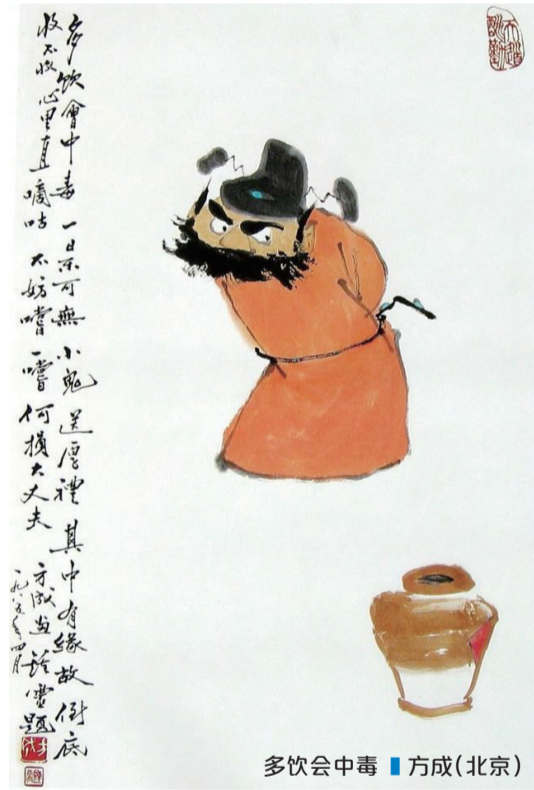 多饮會中毒 一日不可無 小鬼送厚禮 其中有緣故 倒底
收不收 心里直嘀咕 不妨嚐一嚐 何損大丈夫 方成画 鍾靈题
一九八五年四月
多饮会中毒 方成(北京)